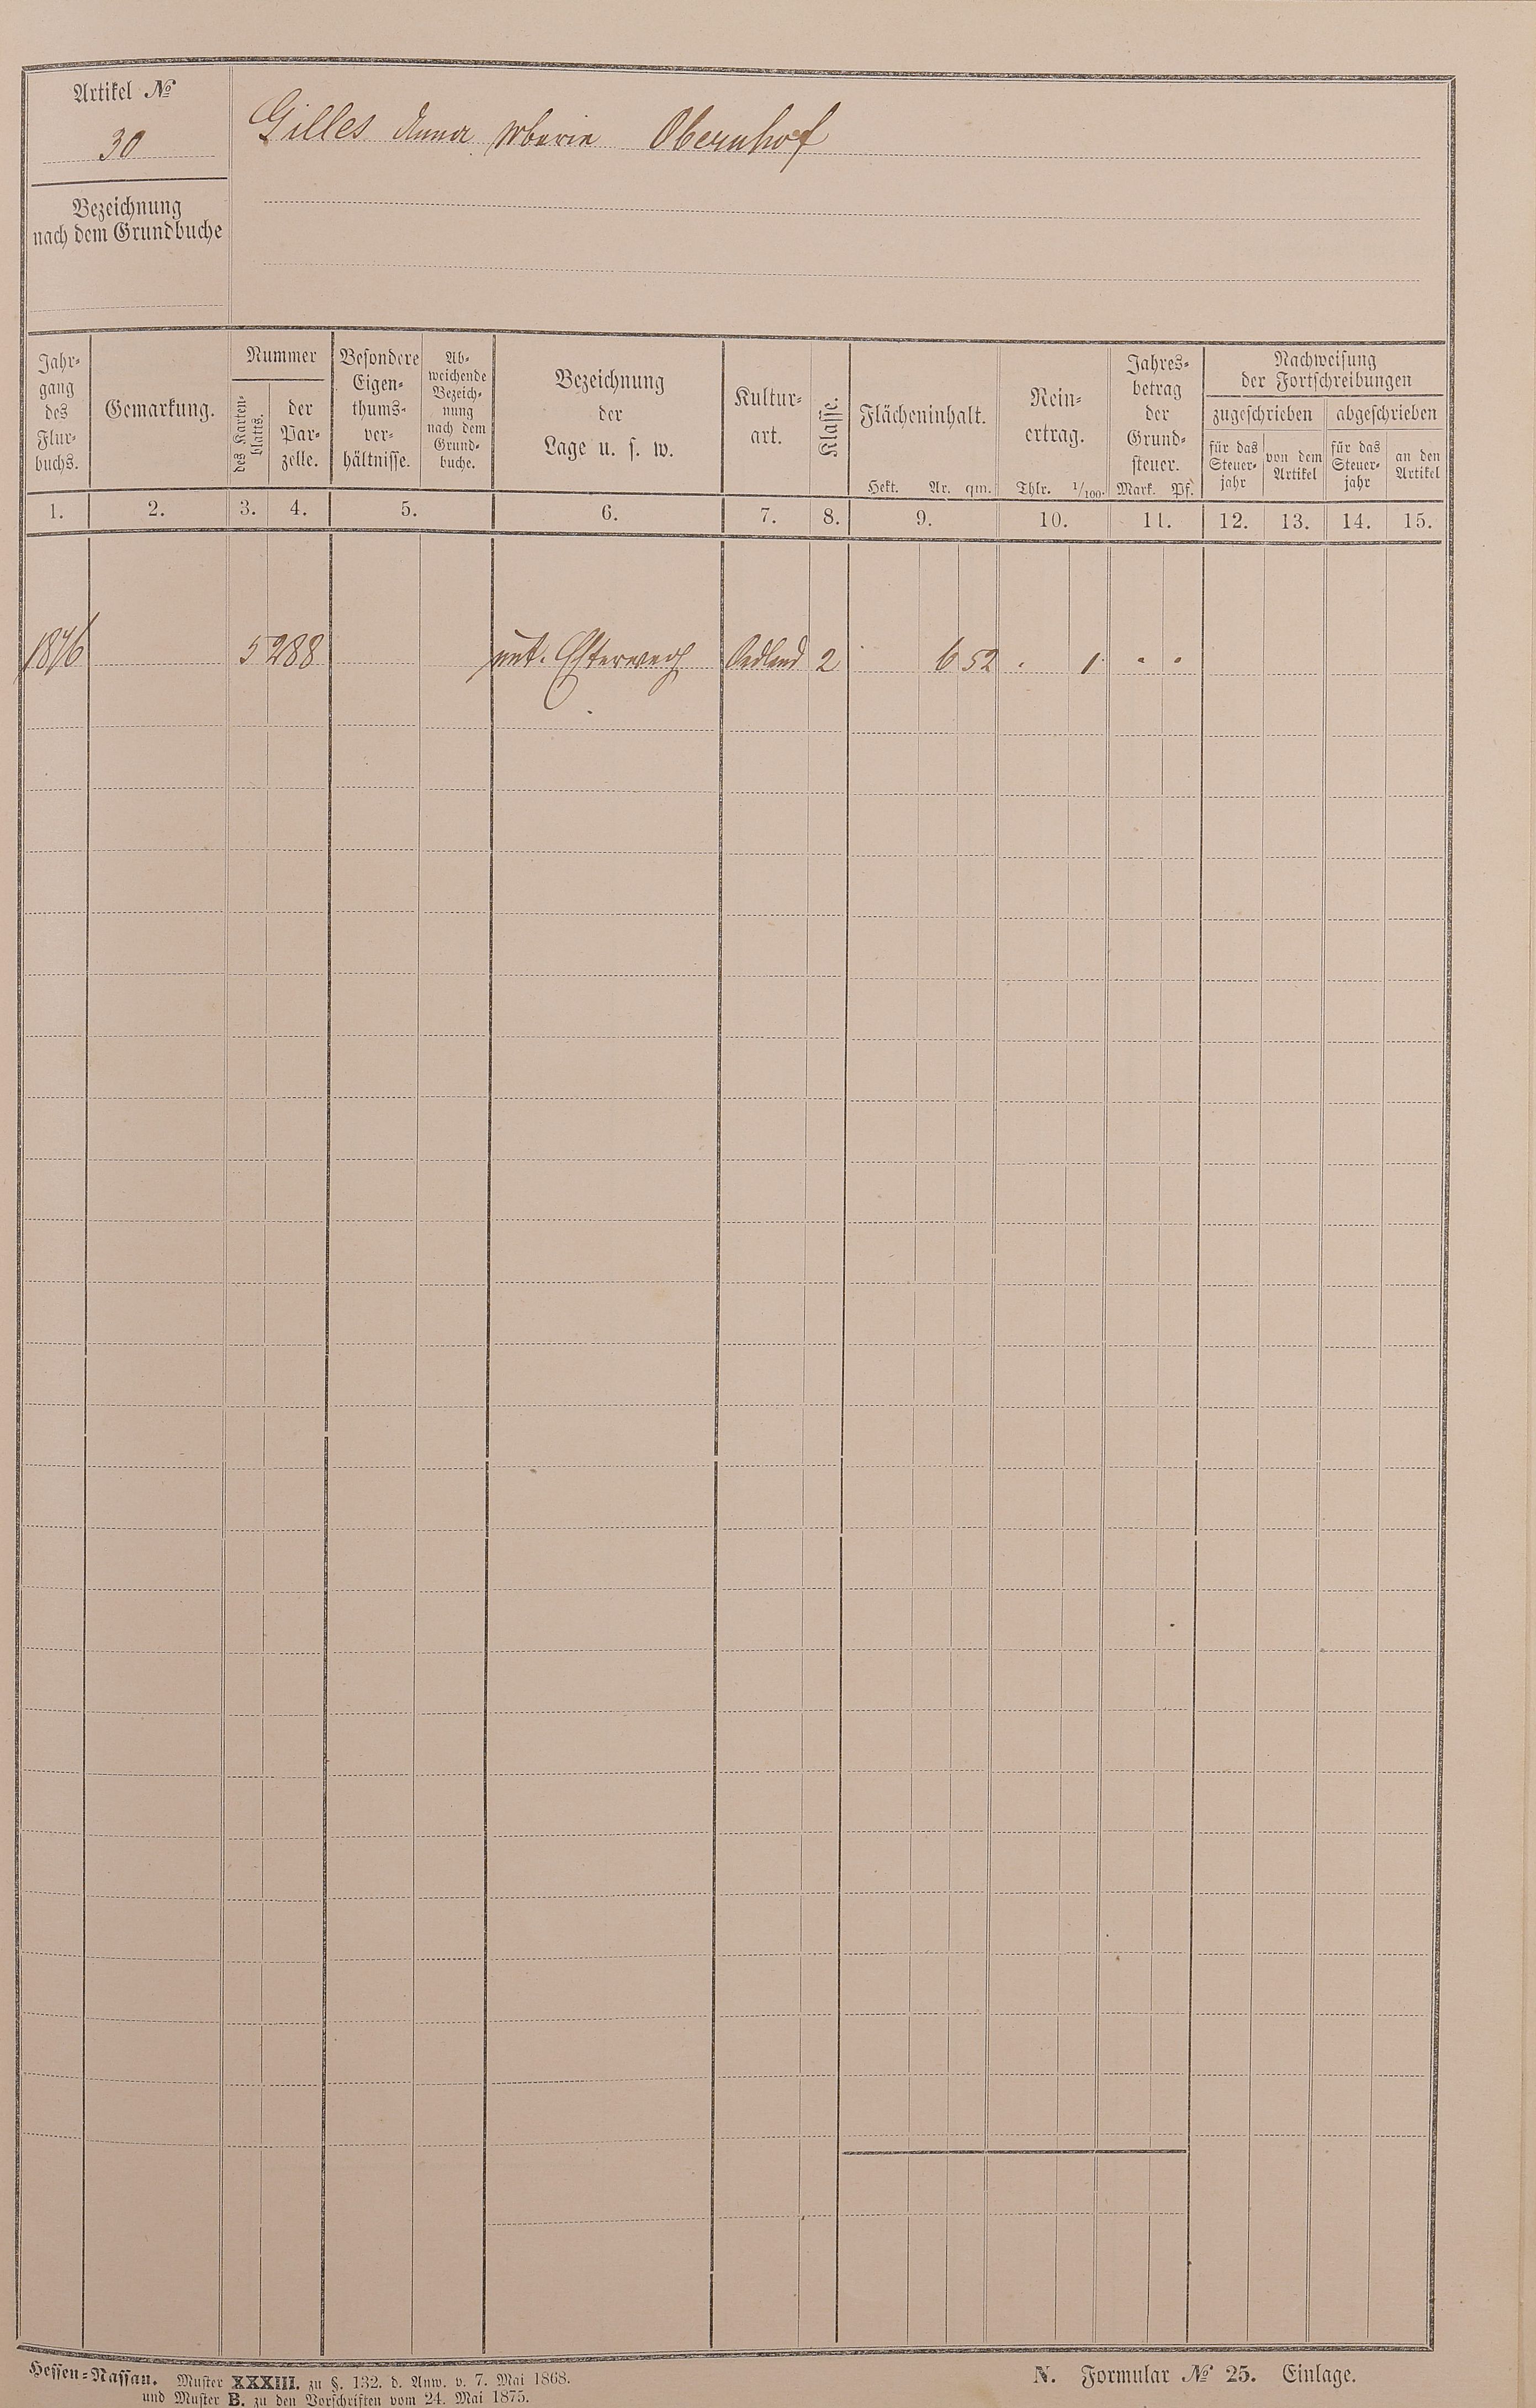 Artikel №
30
Gilles Anna Maria Obernhof
Bezeichnung
nach dem Grundbuche
Jahr-
gang
des
Flur-
buchs.
Gemarkung.
Nummer
des Karten-
blatts.
der
Par-
zelle.
Besondere
Eigen-
thums-
ver-
hältnisse.
Ab-
weichende
Bezeich-
nung
nach dem
Grund-
buche.
Bezeichnung
der
Lage u. s. w.
Kultur-
art.
Klasse.
Flächeninhalt.
Hekt. Ar. qm.
Rein-
ertrag.
Thlr. 1/100.
Jahres-
betrag
der
Grund-
steuer.
Mark. Pf.
Nachweisung
der Fortschreibungen
zugeschrieben abgeschrieben
für das
Steuer-
jahr
von dem
Artikel
für das
Steuer-
jahr
an den
Artikel
1. 2. 3. 4. 5. 6. 7. 8. 9. 10. 11. 12. 13. 14. 15.
1876 5 288 unt. Oedland 2 6 52 . 1 . .
Hessen-Nassau. Muster XXXIII. zu §. 132. d. Anw. v. 7. Mai 1868.
und Muster B. zu den Vorschriften vom 24. Mai 1875.
N. Formular № 25. Einlage.